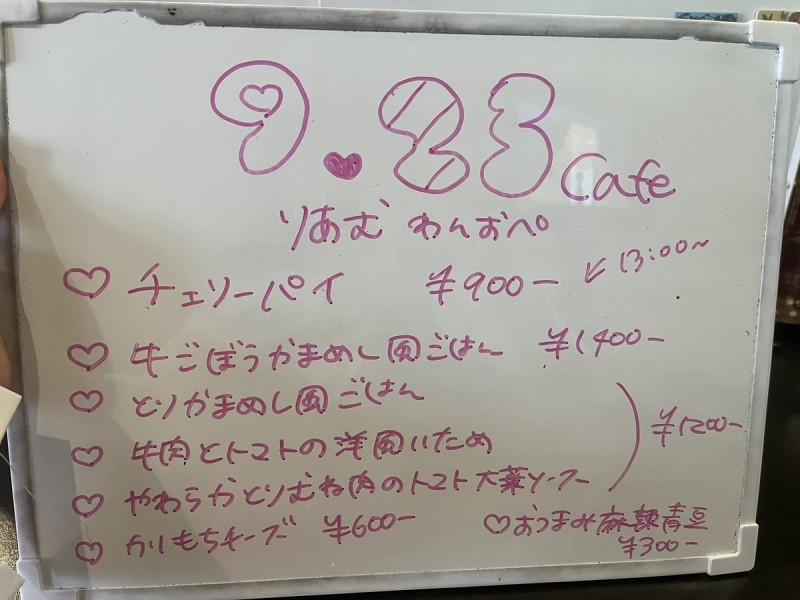 9.23 Cafe
りあむ わんおぺ
♡ チェリーパイ ¥900- ↙ 13:00~
♡ 牛ごぼうかまめし風ごはん ¥1400-
♡ とりかまめし風ごはん
♡ 牛肉とトマトの洋風いため
♡ やわらかとりむね肉のトマト大葉ソース ¥1200-
♡ かりもちチーズ ¥600-
♡おつまみ麻辣青豆
¥300-